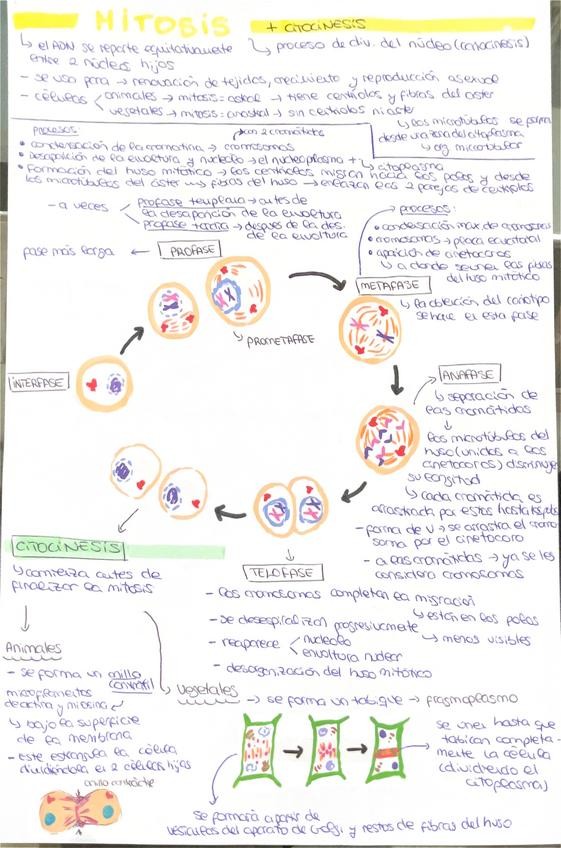 MITOSIS + CITOCINESIS
↳ el ADN se reparte equitativamente
entre 2 núcleos hijos
↳ proceso de div. del núcleo (cariocinesis)
- se usa para → renovación de tejidos, crecimiento y reproducción asexual
- células
animales → mitosis = astral → tiene centriolos y fibras del aster
vegetales → mitosis = anastral → sin centriolos ni aster
↳ los microtúbulos se forman
desde una zona del citoplasma
↳ org microtubular
procesos:
con 2 cromátidas
• condensación de la cromatina → cromosomas
• desaparición de la envoltura y nucleolo → el nucleoplasma + citoplasma
• formación del huso mitótico → los centriolos migran hacia los polos y desde
los microtúbulos del aster → fibras del huso → enlazan las 2 parejas de centriolos
- a veces
profase temprana → antes de
la desaparición de la envoltura
profase tardía → después de la des.
de la envoltura
fase más larga ← PROFASE
→ procesos:
• condensación máx de cromosomas
• cromosomas → placa ecuatorial
• aparición de cinetocoros
↳ a donde se unen las fibras
del huso mitótico
METAFASE
↳ la obtención del cariotipo
se hace en esta fase
↳ PROMETAFASE
INTERFASE
ANAFASE
↳ separación de
las cromátidas
↓
los microtúbulos del
huso (unidos a los
cinetocoros) disminuyen
su longitud
↳ cada cromátida es
arrastrada por estos hasta
- forma de V → se arrastra el cromo
soma por el cinetocoro
- a las cromátidas → ya se les
considera cromosomas
CITOCINESIS
↳ comienza antes de
finalizar la mitosis
TELOFASE
- los cromosomas completan la migración
↳ están en los polos
- se desespiralizan progresivamente
↳ menos visibles
- reaparece
nucleolo
envoltura nuclear
- desorganización del huso mitótico
Animales
- se forma un anillo
contráctil
microfilamentos
de actina y miosina
↳ bajo la superficie
de la membrana
- este estrangula la célula
dividiéndola en 2 células hijas
anillo contráctil
Vegetales → se forma un tabique → fragmoplasto
se unen hasta que
tabican completa-
mente la célula
(dividiendo el
citoplasma)
se formará a partir de
vesículas del aparato de Golgi y restos de fibras del huso